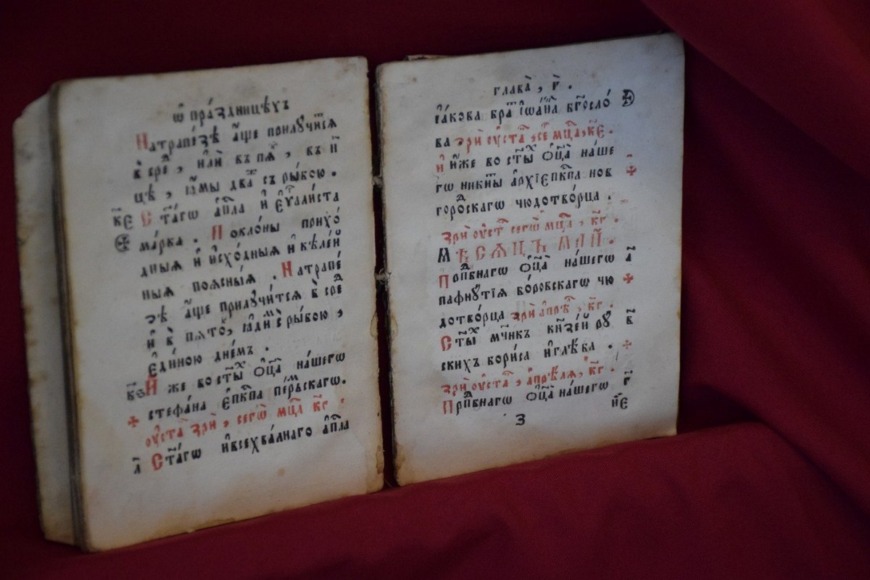 ѿ пра́здницѣхъ
На трапе́зѣ а҆́ще прилꙋчи́тсѧ
в̾ сре́ , и҆лѝ въ пѧ , въ п҃
цѣ , ꙗ҆́мы два́ съ ры́бою .
к҃е Ст҃а́гѡ а҆п҃ла и҆ є҆ѵ҆а́листа
ма́рка . Покло́ны прихо́
дныѧ и҆ и҆схо́дныѧ и҆ ке́ле́й
ныѧ поѧ́сныѧ . На трапе́
зѣ а҆́ще прилꙋчи́тсѧ в̾ сре́
и҆ в̾ пѧто́ , ꙗ҆ди́м с̾ ры́бою ,
є҆ди́ною дне́мъ .
И҆́же во ст҃ы́ ѻ҆ц҃а̀ на́шегѡ
стефа́на є҆п҃кпа пе́рмьскагѡ .
ᲂу҆ста́ зрѝ , сегѡ̀ мц҃а к҃г .
л҃ Ст҃а́гѡ и҆ всехва́лнаго а҆п҃ла
глава̀ , г҃ .
і҆а́кова бра́ і҆ѡа́нна бг҃осло́
ва зрѝ ᲂу҆ста́ , се́ мц҃а , к҃е .
и҆́ И҆́же во ст҃ы́ ѻ҆ц҃а̀ на́ше
гѡ ники́ты а҆рхїе҆п҃кпа нов
горо́скагѡ чюдотво́рца .
зрѝ ᲂу҆ст сегѡ̀ мц҃а , к҃г .
Мѣсѧцъ ма́й .
Прп҃бнагѡ ѻ҆ц҃а̀ на́шегѡ а҃
пафнꙋ́тїѧ бо́ровскагѡ чю
дотво́рца зрѝ а҆пре́ , к҃г .
Ст҃ы́ мч҃нкъ кн҃зе́й рꙋ́ в҃
скихъ бори́са и҆ глѣ́ба .
зрѝ ᲂу҆ста́ , а҆прѣ́лѧ , к҃г .
Прп҃бнагѡ ѻ҆ц҃а̀ на́шегѡ г҃
З